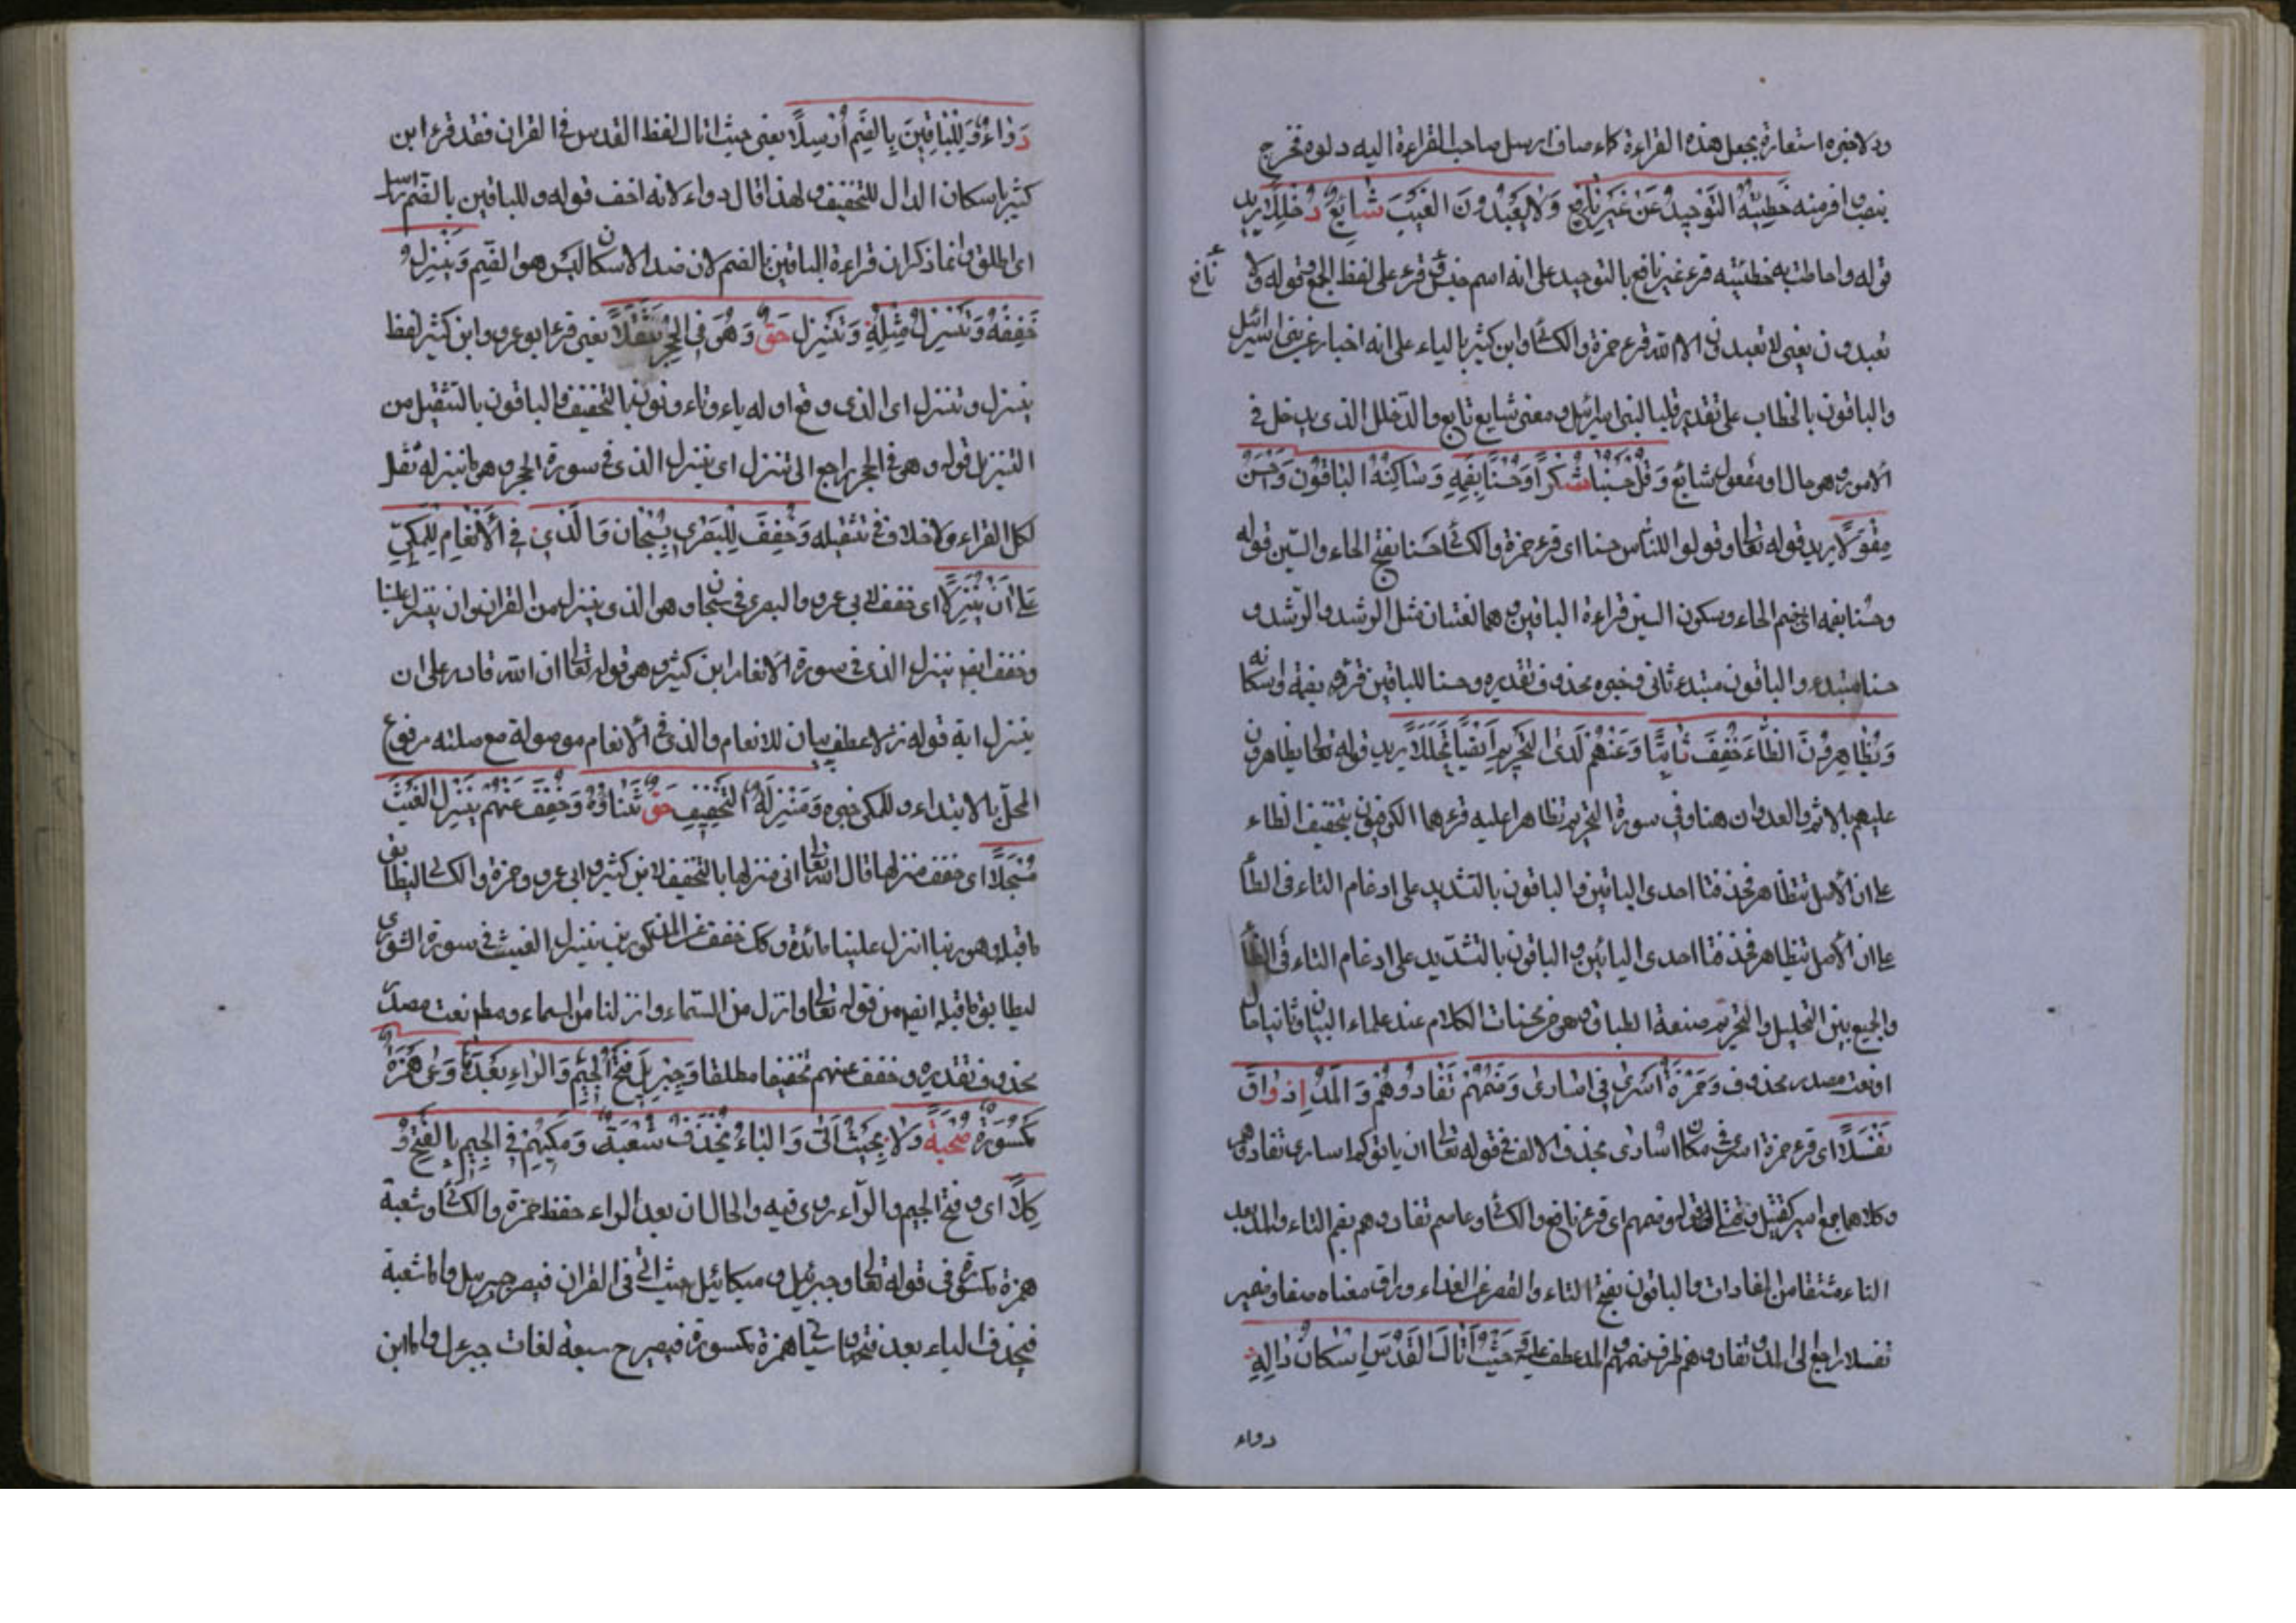 ودلا خبره استعارة يجعل هذه القراءة كماء صاف ارسل صاحب القراءة اليه دلوه فخرج
بنصب وافر منه خَطِيئَتُهُ التَّوْحِيدُ عَنْ غَيْرِ نَافِعٍ وَلَا يَعْبُدُونَ الغَيْبَ شَايَعَ دُخْلُلَا يريد
قوله واحاطت به خطيئته قرء غير نافع بالتوحيد على انه اسم جنس وقرء على لفظ الجمع وقوله لا
نافع
تعبدون يعني لا تعبدون الا الله قرء حمزة والكسائى وابن كثير بالياء على انه اخبار عن بنى اسرائيل
والباقون بالخطاب على تقدير قلنا لبنى اسرائيل ومعنى شايع تابع والدخلل الذى يدخل فى
الامور وهو حال او مفعول شايع وَقُلْ حَسَنًا شُكْرًا وَحُسْنًا بِضَمِّهِ وَسَاكِنِهِ الْبَاقُونَ وَاحْسِنْ
مِقْوَلَا يريد قوله تعالى وقولوا للناس حسنا اى قرء حمزة والكسائى حسنا بفتح الحاء والسين قوله
وحسنا بضمه اى بضم الحاء وسكون السين قراءة الباقين وهما لغتان مثل الرشد والرشد و
حسنا مبتدء والباقون مبتدء ثانى وخبره محذوف وتقديره وحسنا للباقين قرؤه بضمه واسكانه
وَتَظَّاهَرُونَ الظَّاءَ خُفِّفَ ثَابِتًا وَعَنْهُمْ لَدَى التَّحْرِيمِ اَيْضًا تَحَلَّلَا يريد قوله تعالى تظاهرون
عليهم بالاثم والعدوان هنا وفى سورة التحريم تظاهرا عليه قرءهما الكوفيون بتخفيف الظاء
على ان الاصل تتظاهر فحذفتا احدى اليائين والباقون بالتشديد على ادغام التاء فى الظاء
على ان الاصل تتظاهر فحذفتا احدى اليائين والباقون بالتشديد على ادغام التاء فى الظاء
والجمع بين التحليل والتحريم صنعة الطباق وهو من محسنات الكلام عند علماء البيان وثانيا حال
او نعت مصدر محذوف وَحَمْزَةُ اَسْرَى فِى اُسَارَى وَضَمُّهُمْ تُفَادُوهُمُ وَالْمَدُّ اِذْ رَاقَ
نُفِّلَا اى قرء حمزة اسرى فى مكان اسارى بحذف الالف فى قوله تعالى ان ياتوكم اسارى تفادوهم
وكلاهما جمع اسير كقتيل وقتلى قوله وضمهم اى قرء نافع والكسائى وعاصم تفادوهم بضم التاء والمد بعد
التاء مشتقا من المفادات والباقون بفتح التاء والقصر عن الفداء وراق معناه صفا وضمير
نفلا راجع الى المد وتفادوهم ظرف ضمهم والمد عطف عليه وَحَيْثُ اَتَاكَ الْقُدْسُ اِسْكَانُ دَالِهِ
دواء
دَوَاءٌ وَلِلْبَاقِينَ بِالضَّمِّ اُرْسِلَا يعنى حيث اتاك لفظ القدس فى القران فقد قرء ابن
كثير باسكان الدال للتخفيف ولهذا قال دواء لانه اخف قوله وللباقين بالضم ارسلا
اى اطلق وانما ذكر ان قراءة الباقين بالضم لان ضد الاسكان ليس هو الضم وَيُنْزِلُ
خَفِّفْهُ وَتُنْزِلُ مِثْلُهُ وَنُنْزِلُ حَقٌّ وَهُوَ فِى الْحِجْرِ ثُقِّلَا يعنى قرء ابو عمرو وابن كثير لفظ
ينزل وتنزل اى الذى وقع اوله ياء وتاء ونون بالتخفيف والباقون بالتثقيل من
التنزيل قوله وهو فى الحجر راجع الى ننزل اى ننزل الذى فى سورة الحجر وهو ما ننزله ثقل
لكل القراء ولا خلاف فى تثقيله وَخُفِّفَ لِلْبَصْرِى بِسُبْحَانَ وَالَّذِى فِى الْاَنْعَامِ لِلْمَكِّى
عَلَى اَنْ يُنَزِّلَا اى خفف لابى عمرو والبصرى فى سبحان وهو الذى ننزل من القران وان تنزل علينا
وخفف ايضا ينزل الذى فى سورة الانعام ابن كثير وهو قوله تعالى ان الله قادر على ان
ينزل اية قوله نزلا عطف بيان للانعام والذى فى الانعام موصولة مع صلته مرفوع
المحل بالابتداء وللمكى خبره وَمُنْزِلُهَا التَّخْفِيفُ حَقٌّ شِفَاؤُهُ وَخُفِّفَ عَنْهُمْ يُنْزِلُ الْغَيْثَ
مُسْجَلَا اى خفف منزلها قال الله تعالى انى منزلها بالتخفيف لابن كثير وابى عمرو وحمزة والكسائى ليطابق
ما قبله وهو ربنا انزل علينا مائدة وكذا خفف عن المذكورين ينزل الغيث فى سورة الشورى
ليطابق ما قبله ايضا من قوله تعالى وانزل من السماء وانزلنا من السماء ومطلقا نعت مصدر
محذوف تقديره وخفف عنهم تخفيفا مطلقا وَجِبْرِيلَ فَتْحُ الْجِيمِ وَالرَّاءِ بَعْدَهَا وَعَى هَمْزَةً
مَكْسُورَةً صُحْبَةٌ وِلَا بِحَيْثُ اَتَى وَالْيَاءَ يَحْذِفُ شُعْبَةٌ وَمَكِّيُّهُمْ فِى الْجِيمِ بِالْفَتْحِ وُ
كِّلَا اى وفتح الجيم والراء روى فيه والحال ان بعد الراء حفظ حمزة والكسائى وشعبة
همزة مكسورة فى قوله تعالى وجبرئيل وميكائيل حيث اتى فى القران فيصير جبرئيل واما شعبة
فيحذف الياء بعد همزة مكسورة فيصير ح سبعة لغات جبرئل واما ابن